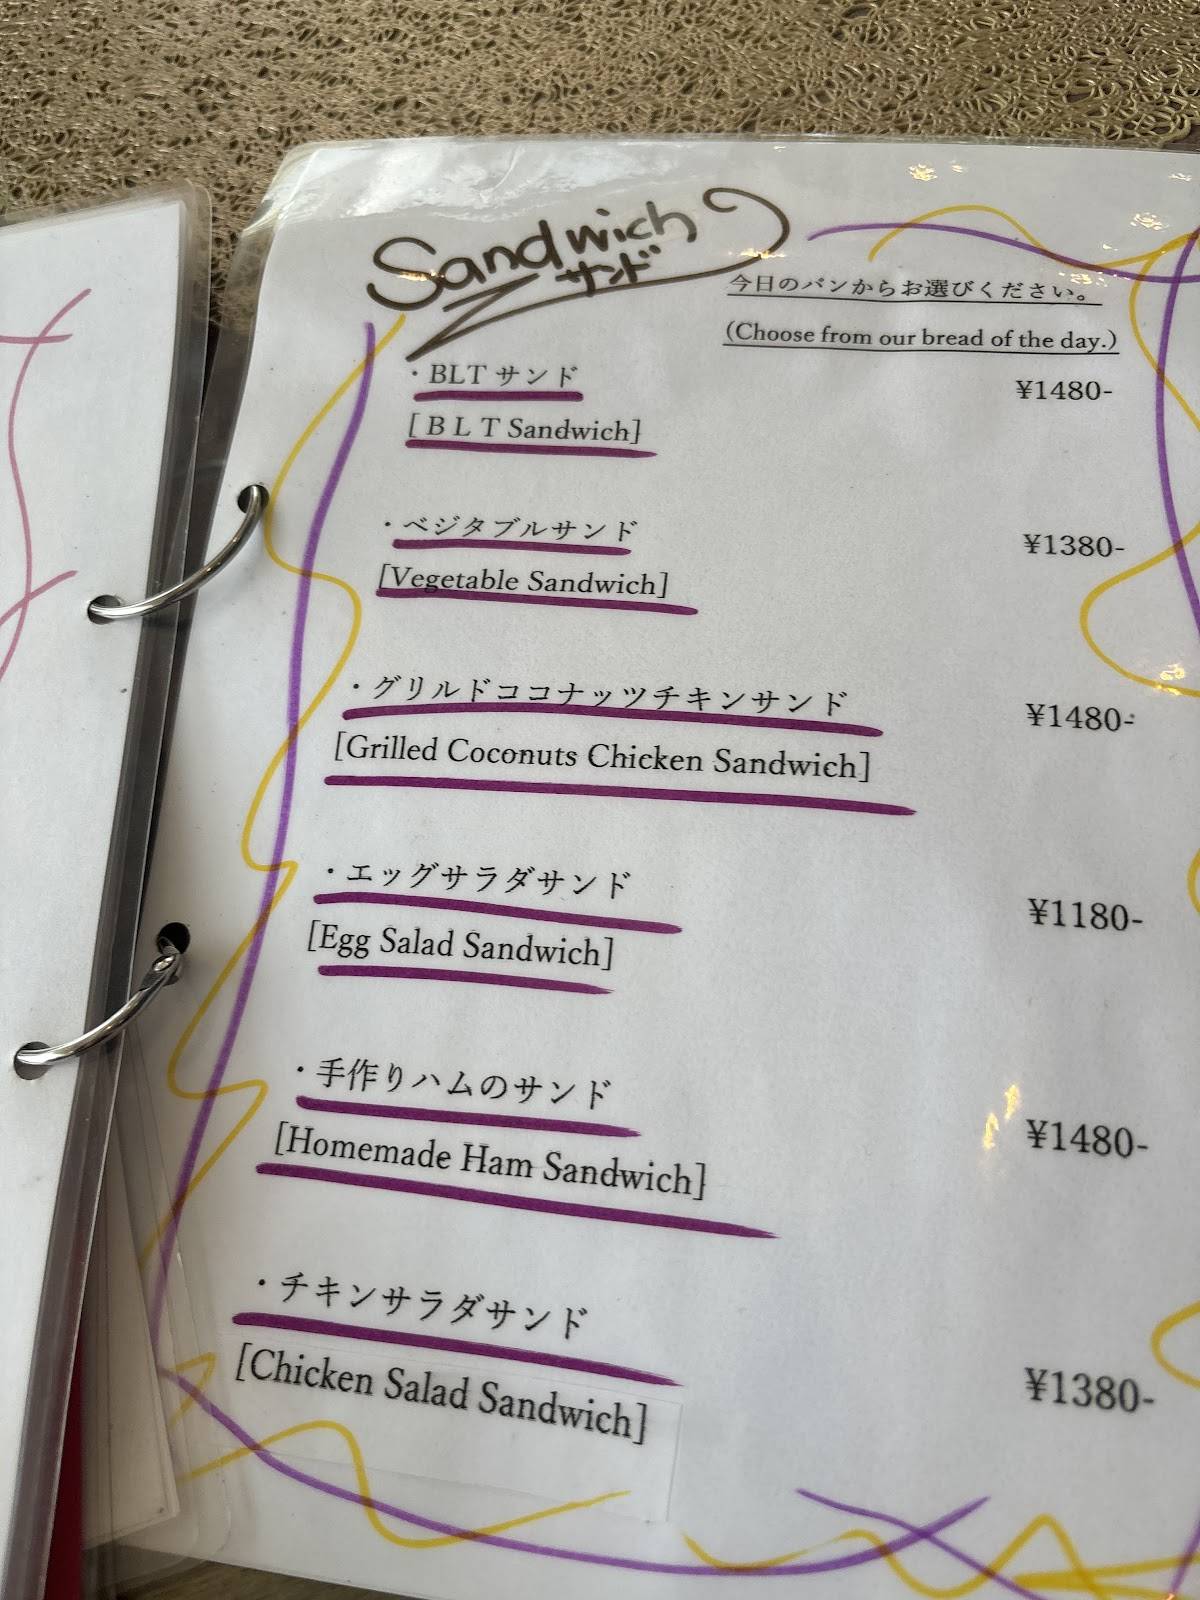 Sandwich
サンド
今日のパンからお選びください。
(Choose from our bread of the day.)
・BLT サンド ¥1480-
[ B L T Sandwich]
・ベジタブルサンド ¥1380-
[Vegetable Sandwich]
・グリルドココナッツチキンサンド ¥1480-
[Grilled Coconuts Chicken Sandwich]
・エッグサラダサンド ¥1180-
[Egg Salad Sandwich]
・手作りハムのサンド ¥1480-
[Homemade Ham Sandwich]
・チキンサラダサンド ¥1380-
[Chicken Salad Sandwich]